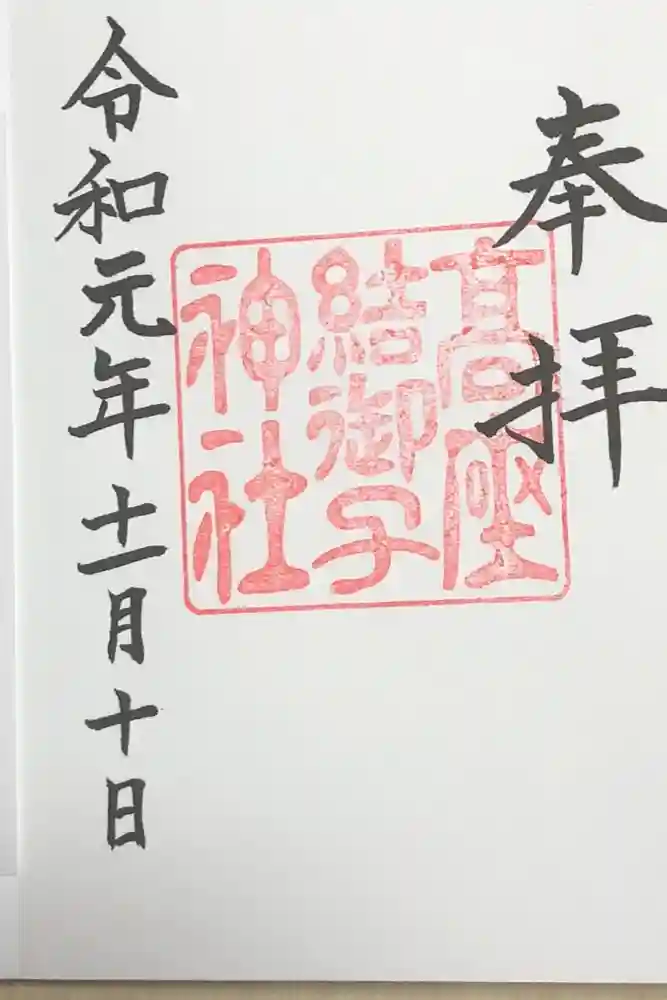 奉拝
高座
結御子
神社
令和元年十一月十日